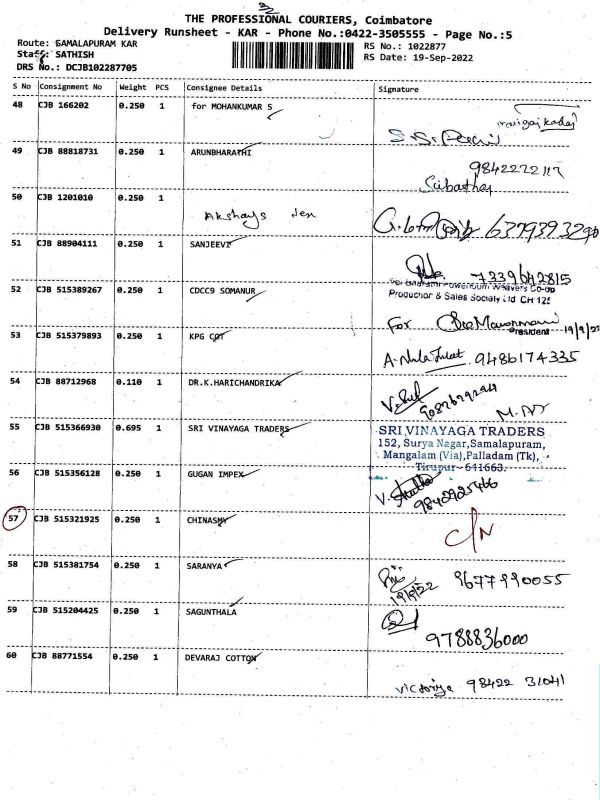 THE PROFESSIONAL COURIERS, Coimbatore
Delivery Runsheet - KAR - Phone No.:0422-3505555 - Page No.:5
Route: SAMALAPURAM KAR
RS No.: 1022877
Staff: SATHISH
RS Date: 19-Sep-2022
DRS No.: DCJB102287705
S No Consignment No Weight PCS Consignee Details Signature
48 CJB 166202 0.250 1 for MOHANKUMAR S
49 CJB 88818731 0.250 1 ARUNBHARATHI
9842222117
50 CJB 1201010 0.250 1
Akshays
51 CJB 88904111 0.250 1 SANJEEVI
7339642815
52 CJB 515389267 0.250 1 CDCC9 SOMANUR
Powerloom Weavers Co-op
Production & Sales Society Ltd CH 125
For
President 19/9/22
53 CJB 515379893 0.250 1 KPG COT
9486174335
54 CJB 88712968 0.110 1 DR.K.HARICHANDRIKA
55 CJB 515366930 0.695 1 SRI VINAYAGA TRADERS
SRI VINAYAGA TRADERS
152, Surya Nagar,Samalapuram,
Mangalam (Via),Palladam (Tk),
Tirupur - 641663.
56 CJB 515356128 0.250 1 GUGAN IMPEX
57 CJB 515321925 0.250 1 CHINASMY
C/N
58 CJB 515381754 0.250 1 SARANYA
19/9/22 9677990055
59 CJB 515204425 0.250 1 SAGUNTHALA
9788836000
60 CJB 88771554 0.250 1 DEVARAJ COTTON
victoriya 98422 31041